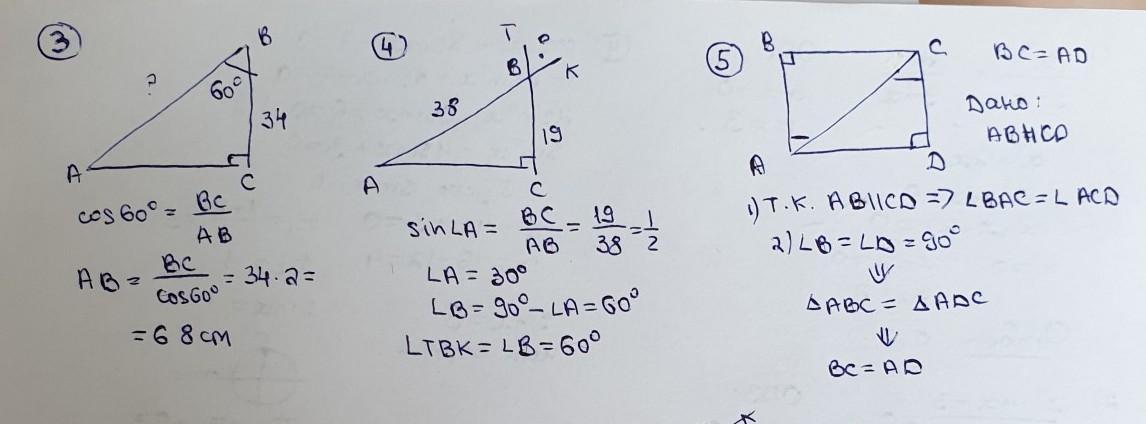 3
B
?
60°
34
A
C
cos60° = BC/AB
AB = BC/cos60° = 34·2=
= 68 см
4
T
?
B
K
38
19
A
C
sin∠A = BC/AB = 19/38 = 1/2
∠A = 30°
∠B = 90° – ∠A = 60°
∠TBK = ∠B = 60°
5
B
C
A
D
BC = AD
Дано:
AB||CD
1) Т.К. AB||CD => ∠BAC = ∠ACD
2) ∠B = ∠D = 90°
⇓
△ABC = △ADC
⇓
BC = AD